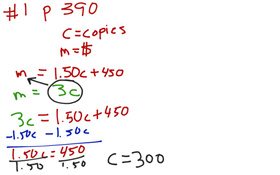 #1 p 390
C=copies
m=$
m = 1.50c+450
m = 3c
3c = 1.50c+450
-1.50c -1.50c
1.50c = 450
1.50 1.50
C=300